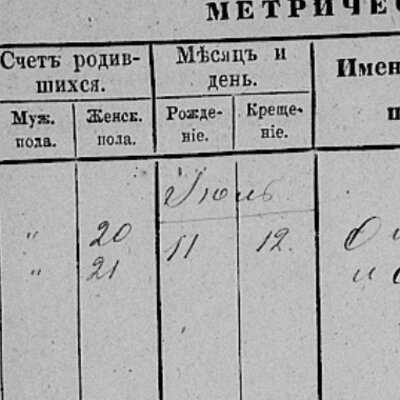 МЕТРИЧЕС
Счетъ родив-
шихся.
Мѣсяцъ и
день.
Имен
Муж.
пола.
Женск.
пола.
Рожде-
ніе.
Креще-
ніе.
Июль
" 20 11 12.
" 21 и